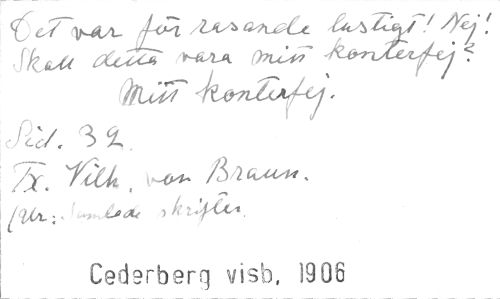 Det var för rasande lustigt! Nej!
Skall detta vara mitt konterfej?
Mitt konterfej.
Sid. 32.
Tx. Vilh. von Braun.
(Ur: Samlade skrifter.
Cederberg visb, 1906